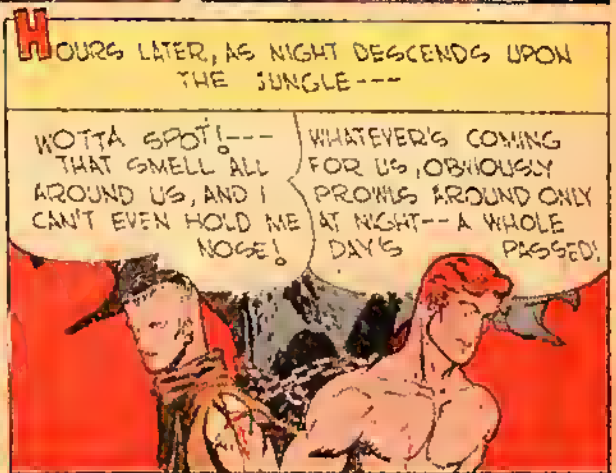 HOURS LATER, AS NIGHT DESCENDS UPON
THE JUNGLE---
WOTTA SPOT!---
THAT SMELL ALL
AROUND US, AND I
CAN'T EVEN HOLD ME
NOSE!
WHATEVER'S COMING
FOR US, OBVIOUSLY
PROWLS AROUND ONLY
AT NIGHT-- A WHOLE
DAY'S PASSED!